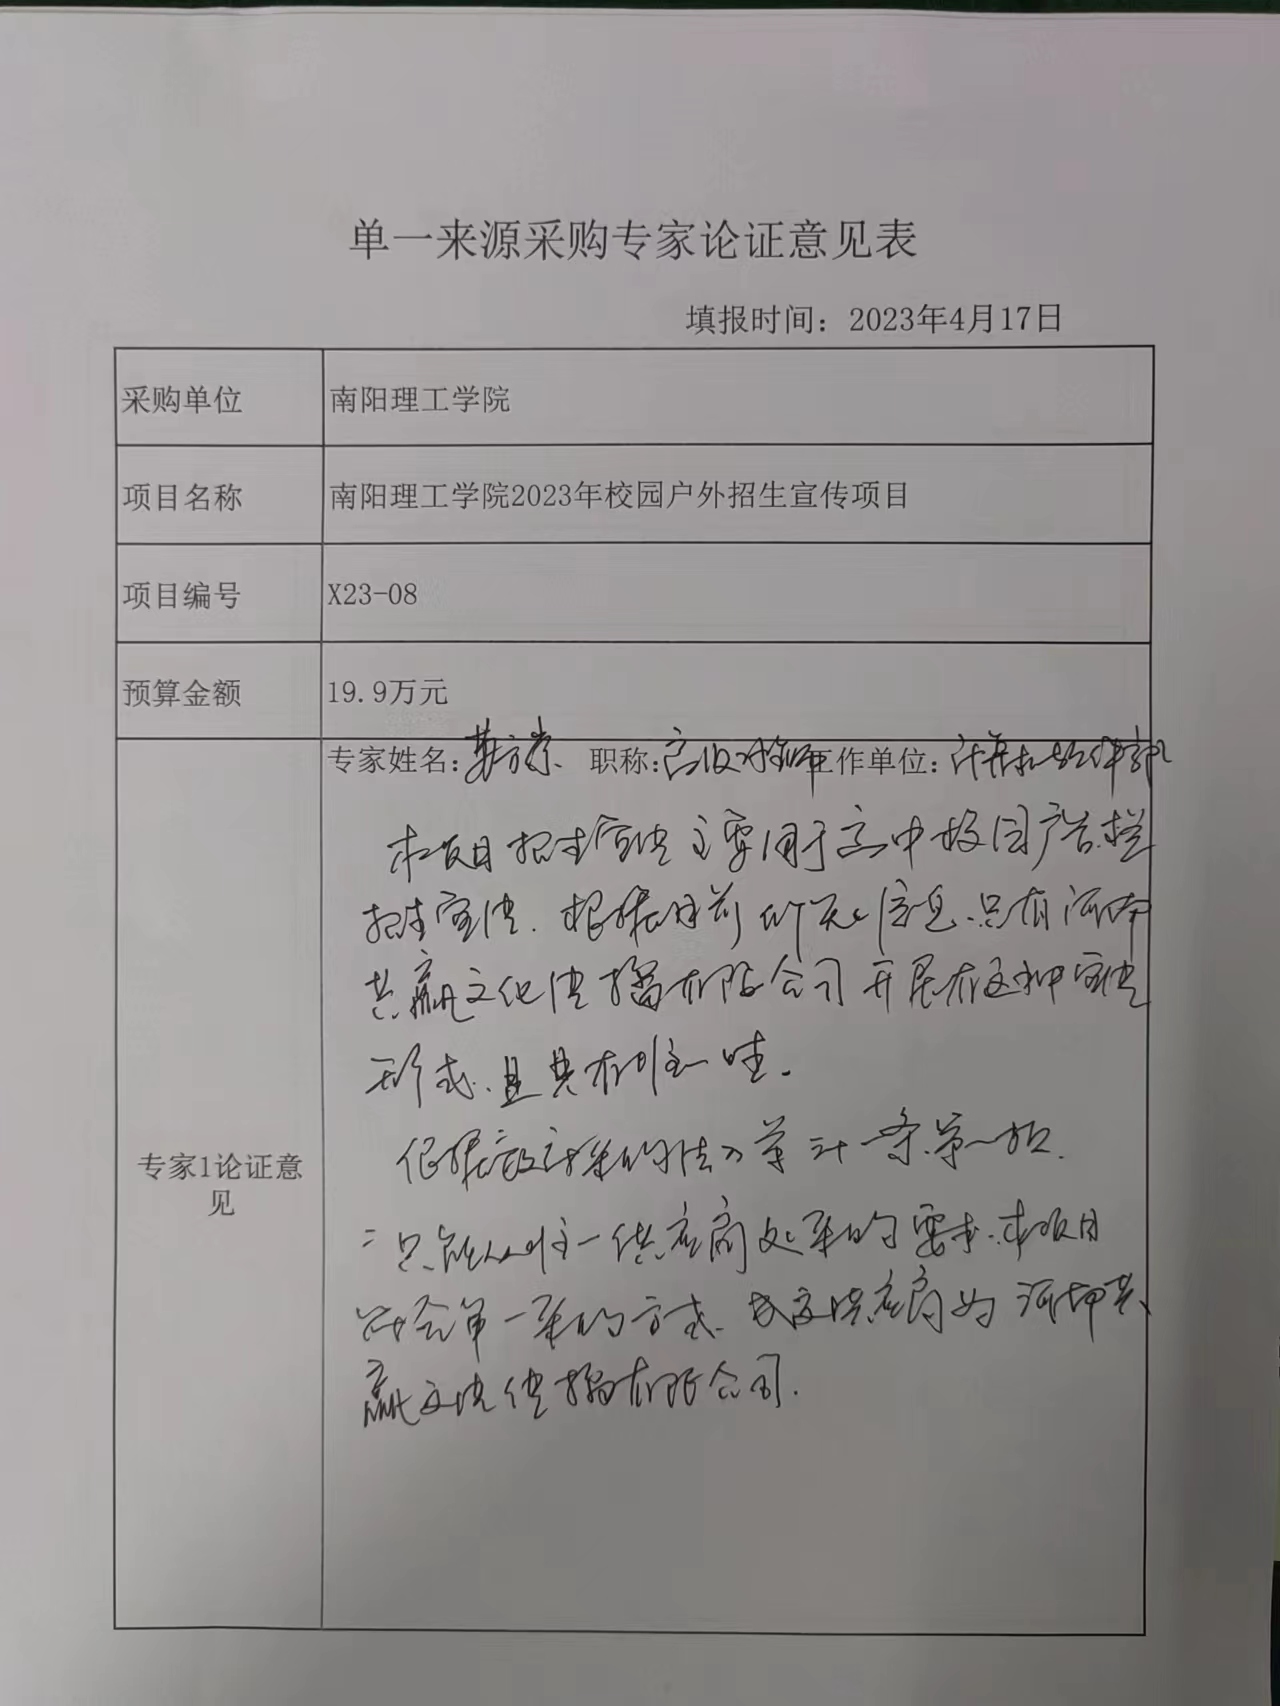 单一来源采购专家论证意见表
填报时间：2023年4月17日
采购单位 南阳理工学院
项目名称 南阳理工学院2023年校园户外招生宣传项目
项目编号 X23-08
预算金额 19.9万元
专家1论证意见
专家姓名： 职称：高级 工作单位：
本项目招生宣传主要用于高中校园广告栏
招生宣传.根据目前 信息.只有河南
共赢文化传播有限公司开展有这种宣传
形式.且具有唯一性.
依据 采购法 第三十一条.第一款.
只能从唯一供应商处采购的要求.本项目
符合单一采购方式.成交供应商为河南共
赢文化传播有限公司.